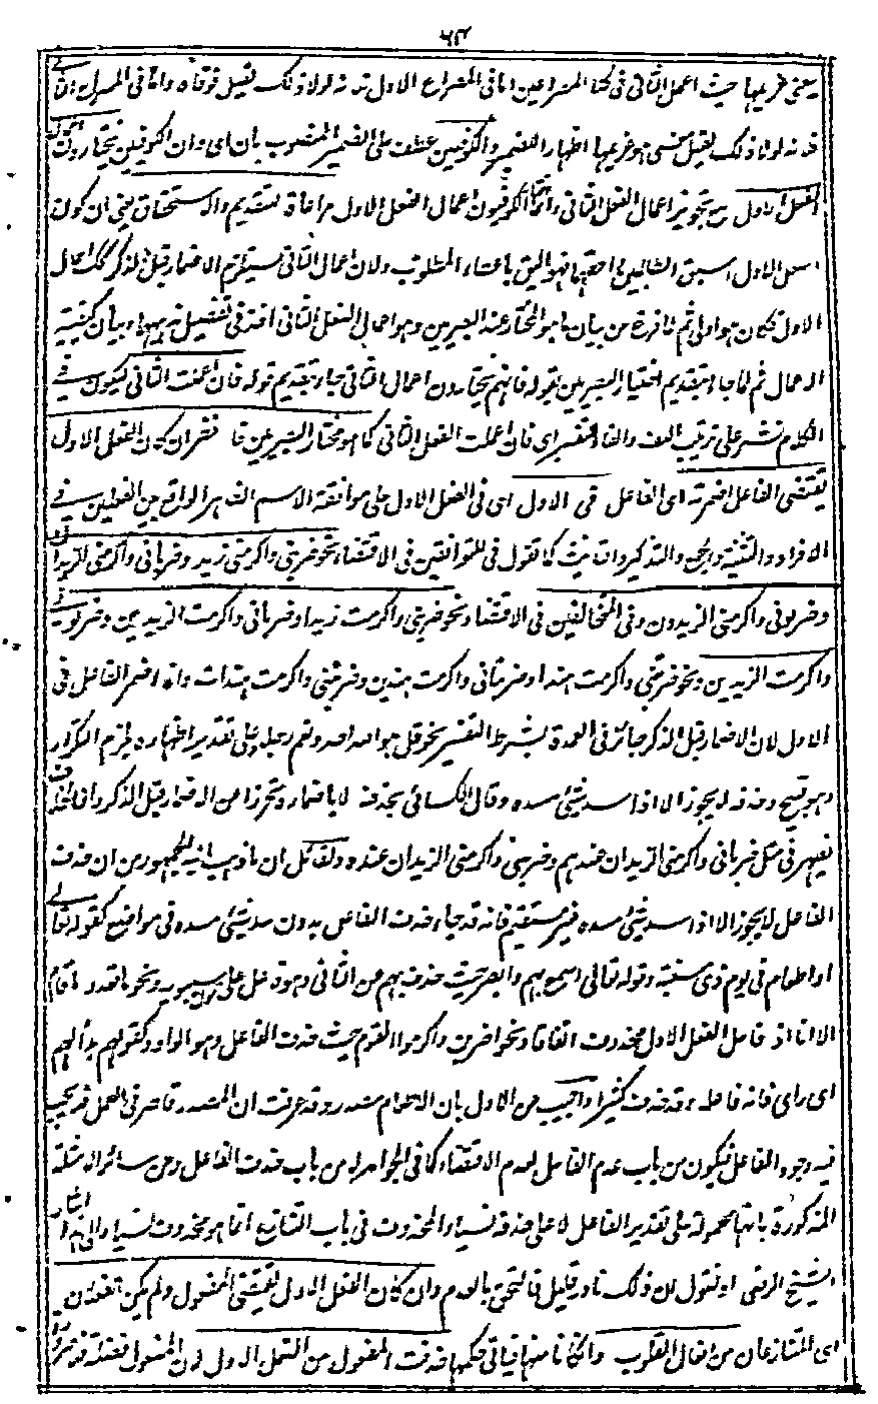 ٦٣
يعني غريمها حيث اعمل الثاني في كلا المصراعين اما في المصراع الاول فلانه لولا ذلك لقيل فوفاه واما في المصراع الثاني
فلانه لولا ذلك لقيل معنى هو غريمها اظهار الضمير والكوفيين عطف على الضمير المنصوب بان اي وان الكوفيين يختارون اعمال
الفعل الاول مع تجويز اعمال الفعل الثاني وانما الكوفيون اعمال الفعل الاول مراعاة للتقديم والاستحقاق يعني ان كون
الفعل الاول اسبق الطالبين احقهما فهو اليق باعطاء المطلوب ولان اعمال الثاني يستلزم الاضمار قبل الذكر لا اعمال
الاول فكان هو اولى ثم لما فرغ من بيان ما هو المختار عند البصريين وهو اعمال الفعل الثاني اخذ في تفصيل مذهبهما وبيان كيفية
الاعمال ثم لما جاء بتقديم اختيار البصريين بقوله فانهم يختارون اعمال الثاني جاء بتقديم قوله فان اعملت الثاني ليكون في
الكلام نشر على ترتيب اللف والفاء للتفسير اي فان اعملت الفعل الثاني كما هو مختار البصريين فانظر ان كان الفعل الاول
يقتضي الفاعل اضمرته اي الفاعل في الاول اي في الفعل الاول على موافقة الاسم الظاهر الواقع بين الفعلين في
الافراد والتثنية والجمع والتذكير والتانيث كما تقول في المتوافقين في الاقتضاء نحو ضربني واكرمني زيد وضرباني واكرمني الزيدان
وضربوني واكرمني الزيدون وفي المتخالفين في الاقتضاء نحو ضربني واكرمت زيدا وضرباني واكرمت الزيدين وضربوني
واكرمت الزيدين ونحو ضربتني واكرمت هندا وضربتاني واكرمت هندين وضربنني واكرمت هندات وانما اضمر الفاعل في
الاول لان الاضمار قبل الذكر جائز في العمدة بشرط التفسير نحو قل هو الله احد ونعم رجلا وعلى تقدير اظهاره يلزم التكرار
وهو قبيح وحذفه لا يجوز الا اذا سد شيئ مسده وقال الكسائي بحذفه لا باضماره تحرزا عن الاضمار قبل الذكر واثر الخلاف
يظهر في مثل ضرباني واكرمني الزيدان عندهم وضربني واكرمني الزيدان عنده ولقائل ان ما ذهب اليه الجمهور من ان حذف
الفاعل لا يجوز الا اذا سد شيئ مسده غير مستقيم فانه قد جاء حذف الفاعل بدون سد شيئ مسده في مواضع كقوله تعالى
او اطعام في يوم ذي مسغبة وقوله تعالى اسمع بهم وابصر حيث حذف بهم من الثاني وهو فاعل على سيبويه ونحو ما قعد وما قام
الا انا اذ فاعل الفعل الاول محذوف اتفاقا ونحو اضربن واكرموا القوم حيث حذف الفاعل وهو الواو وكقولهم بدا لهم
اي راي فانه فاعله وقد حذف كثيرا واجيب عن الاول بان الاطعام مصدر وقد عرفت ان المصدر قاصر في العمل فلا يجب
فيه وجود الفاعل فيكون من باب عدم الفاعل لعدم الاقتضاء كما في الجوامد لا من باب حذف الفاعل وعن سائر الامثلة
المذكورة بانها محمولة على تقدير الفاعل لا على حذفه نسيا والمحذوف في باب التنازع انما هو محذوف نسيا والى هذا اشار
الشيخ الرضي او نقول لان ذلك نادر قليل فالتحق بالعدم وان كان الفعل الاول يقتضي المفعول ولم يكن الفعلان
اي المتنازعان من افعال القلوب واما ما كانا منها فياتي حكمها حذفت المفعول من الفعل الاول لان المفعول فضلة